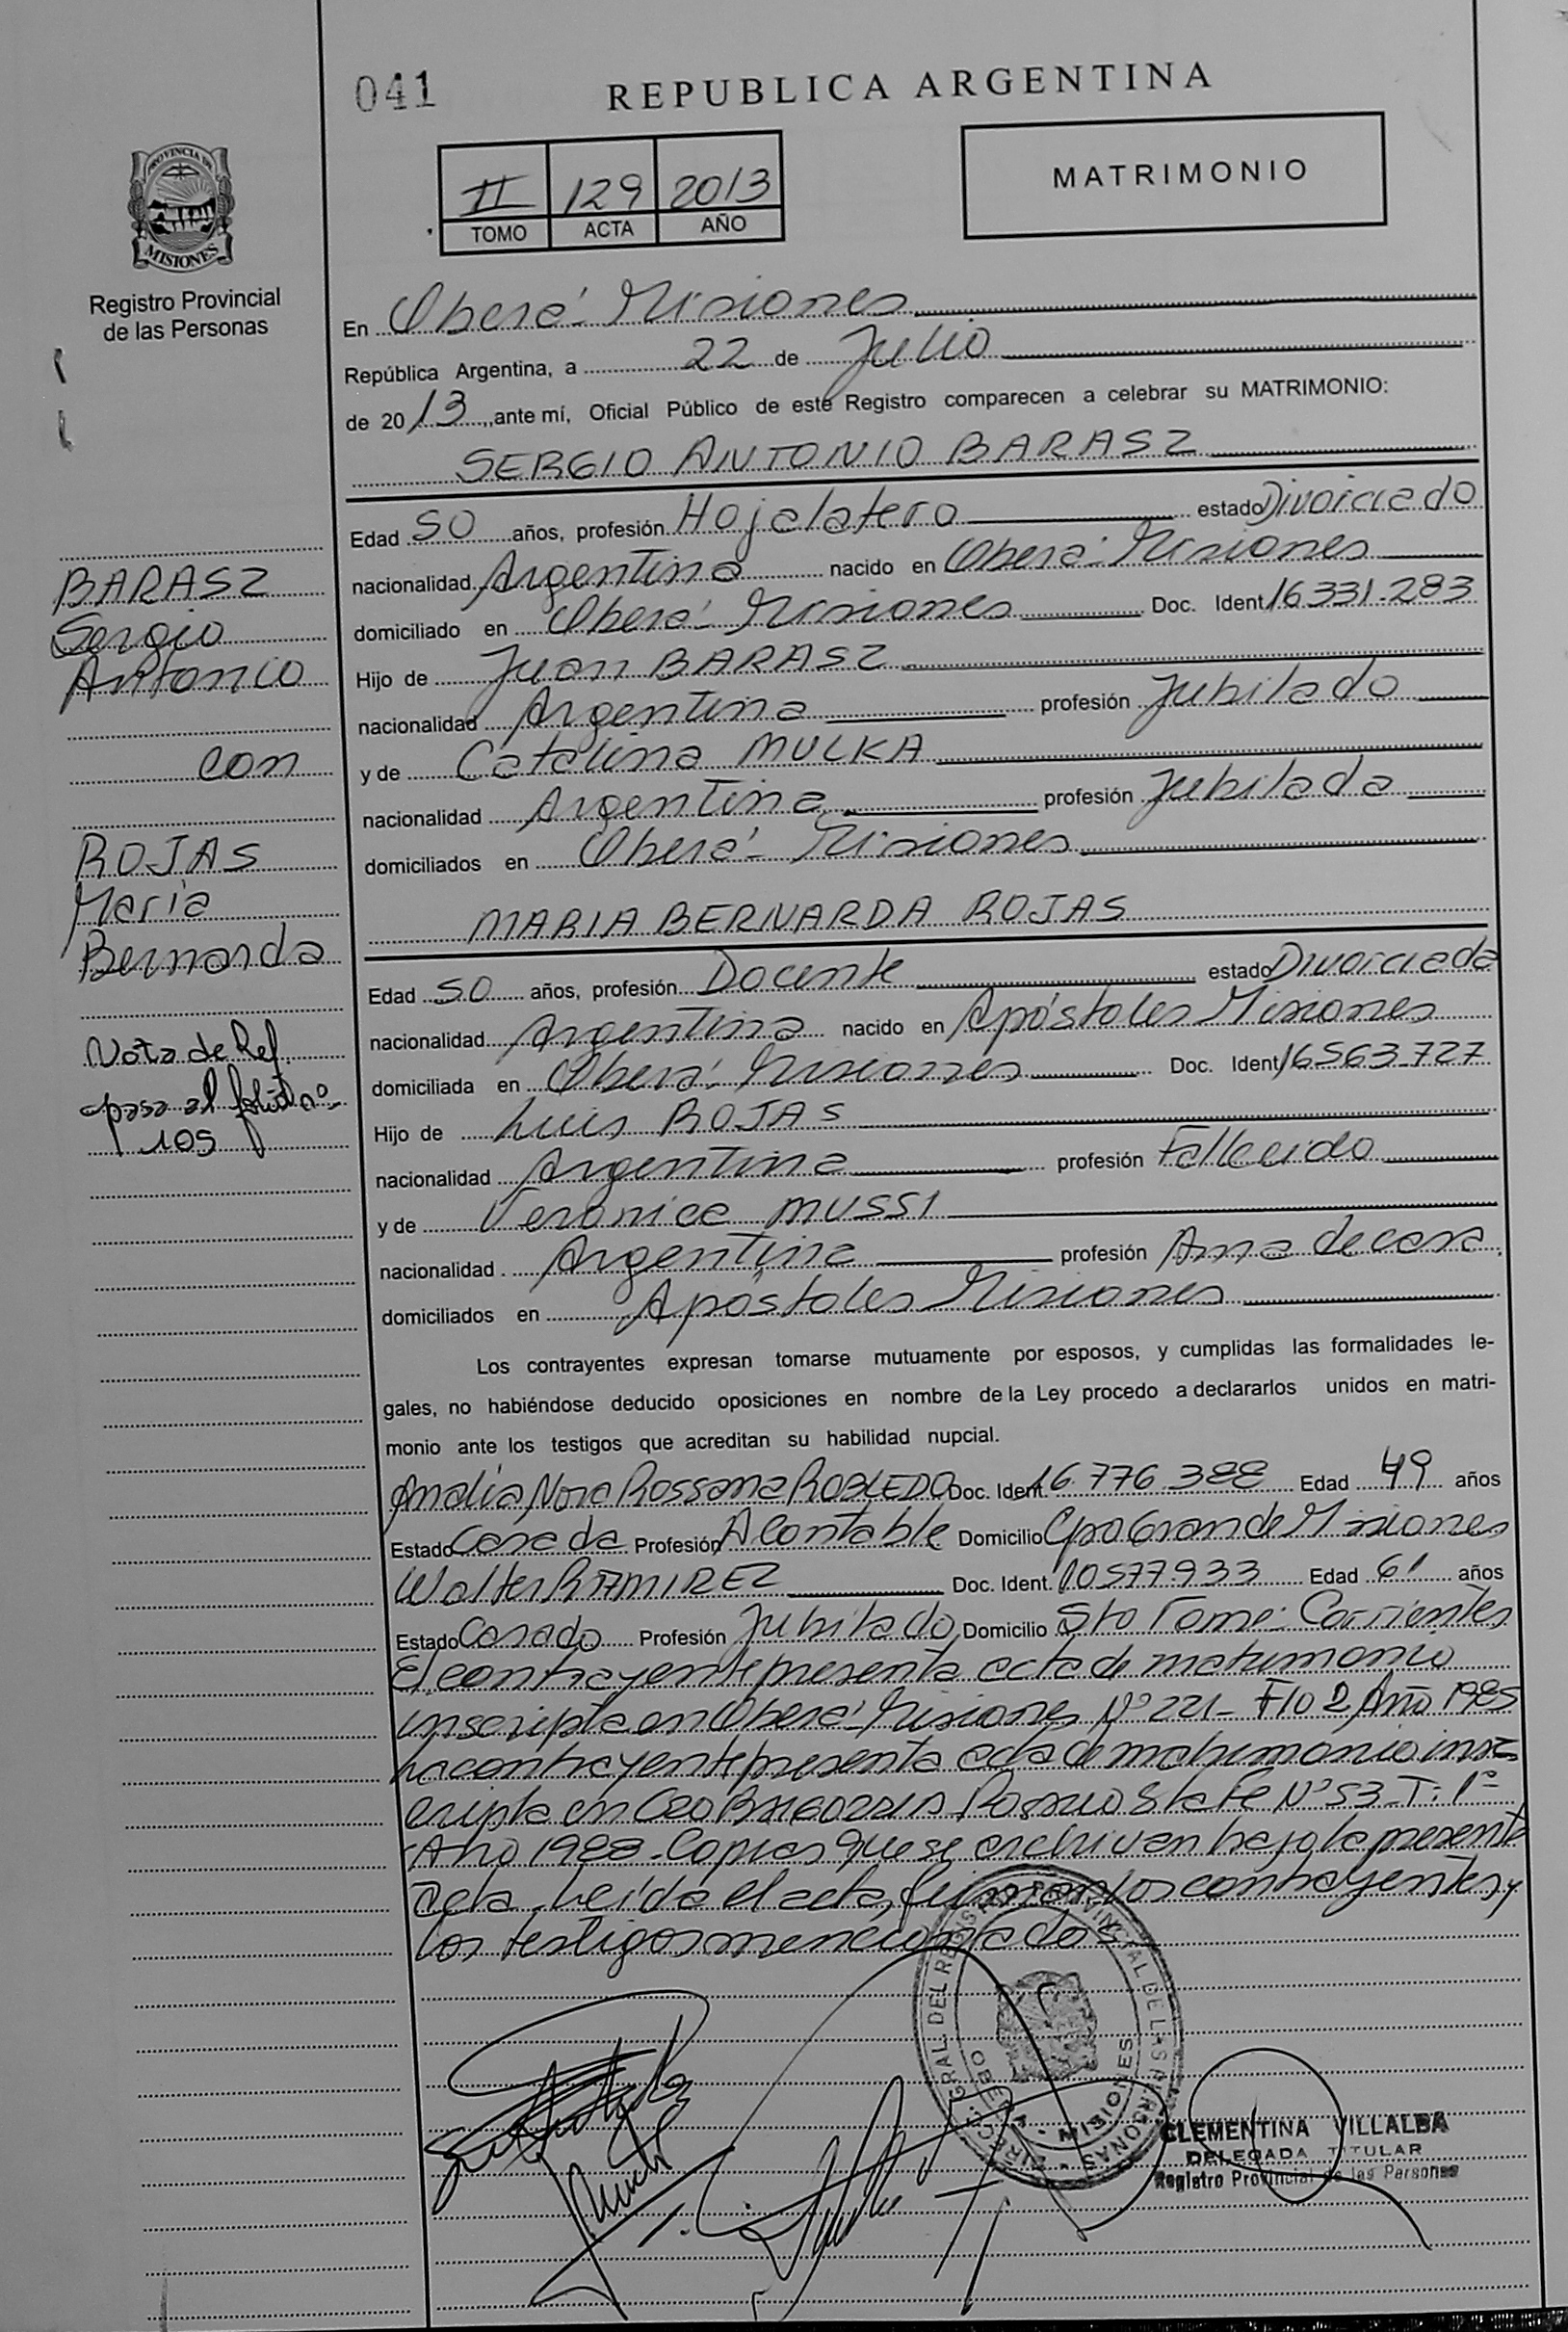 041
REPUBLICA ARGENTINA
II 129 2013
TOMO ACTA AÑO
MATRIMONIO
PROVINCIA DE
MISIONES
Registro Provincial
de las Personas
En Oberá - Misiones
República Argentina, a 22 de Julio
de 2013, ante mí, Oficial Público de este Registro comparecen a celebrar su MATRIMONIO:
SERGIO ANTONIO BARASZ
Edad 50 años, profesión Hojalatero estado Divorciado
nacionalidad Argentina nacido en Oberá - Misiones
domiciliado en Oberá - Misiones Doc. Ident 16.331.283
Hijo de Juan BARASZ
nacionalidad Argentina profesión Jubilado
y de Catalina MULKA
nacionalidad Argentina profesión Jubilada
domiciliados en Oberá - Misiones
MARIA BERNARDA ROJAS
Edad 50 años, profesión Docente estado Divorciada
nacionalidad Argentina nacido en Apóstoles Misiones
domiciliada en Oberá - Misiones Doc. Ident 16563.727
Hijo de Luis ROJAS
nacionalidad Argentina profesión Fallecido
y de Veronica MUSSI
nacionalidad Argentina profesión Ama de casa.
domiciliados en Apóstoles Misiones
BARASZ
Sergio
Antonio
con
ROJAS
María
Bernarda
Nota de Ref.
pasa al folio nº
105
Los contrayentes expresan tomarse mutuamente por esposos, y cumplidas las formalidades le-
gales, no habiéndose deducido oposiciones en nombre de la Ley procedo a declararlos unidos en matri-
monio ante los testigos que acreditan su habilidad nupcial.
Analia Nora Rossana ROBLEDO Doc. Ident. 16.776.388 Edad 49 años
Estado Casada Profesión A Contable Domicilio Cpo Grande Misiones
Walter RAMIREZ Doc. Ident. 10577933 Edad 61 años
Estado Casado Profesión Jubilado Domicilio Sto Tome - Corrientes
El contrayente presenta acta de matrimonio
inscripta en Oberá - Misiones Nº 221 - Fº 2 Año 1985
La contrayente presenta acta de matrimonio ins-
cripta en Rosario Sta Fe Nº 53 - T: 1º
Año 1988 - Copias que se archivan bajo la presente
acta. Leída el acta, firman los contrayentes y
los testigos mencionados
DIRECC. GRAL. DEL REGISTRO PROVINCIAL DE LAS PERSONAS
MISIONES
CLEMENTINA VILLALBA
DELEGADA TITULAR
Registro Provincial de las Personas